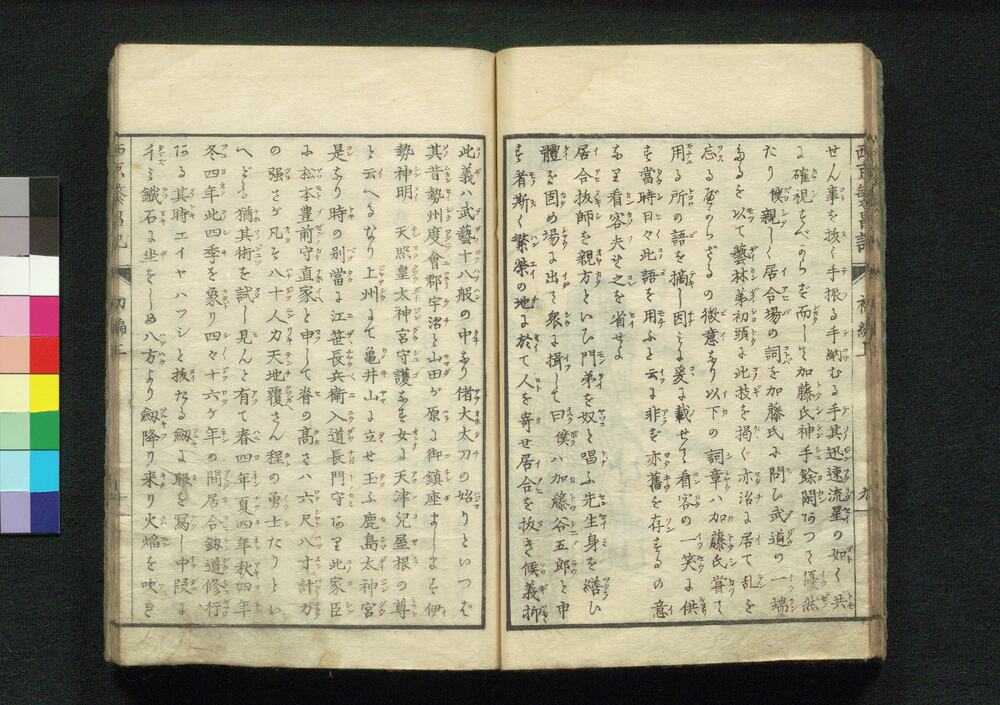 せん事を抜く手振る手納むる手其迅速流星の如く共
に確視すべからず而して加藤氏神手餘閑あつて優然
たり僕親しく居合場の詞を加藤氏に問ひ武道の一端
なるを以て藝林第初頭に此技を掲ぐ亦治に居て乱を
忘る可からざるの微意なり以下の詞章ハ加藤氏嘗て
用る所の語を摘し因て爰に載せて看容の一笑に供
す當時日々此語を用ふと云に非ず亦舊を存するの意
なり看容夫せ之を省せよ
居合抜師を親方といひ門弟を奴と唱ふ先生身を繕ひ
體を固め場に出て衆に揖して曰僕ハ加藤谷五郎と申
す者斯く繁榮の地に於て人を寄せ居合を抜き候義抑
此義ハ武藝十八般の中なり偖大太刀の始りといつぱ
其昔勢州度會郡宇沼と山田が原に御鎮座まします伊
勢神明 天照皇太神宮守護なを女に天津兒屋根の尊
と云へるなり上州にて亀井山に立せ玉ふ鹿島太神宮
是なり時の別當に江笹長兵衛入道長門守なり此家臣
に松本豊前守直家と申して脊の高さハ六尺八寸計力
の强さが凡そ八十人力天地覆さん程の勇士たりとい
へども猶其術を試し見んと有て春四年夏四年秋四年
冬四年此四季を象り四々十六ケ年の間居合劔道修行
ある其時エイヤハツシと抜たる劔に眼を寫し中段に
千ミ鐵石に坐をしめ八方より劔降り来り火焔を吹き
西京繁昌記 初編上 九
西京繁昌記 初編上